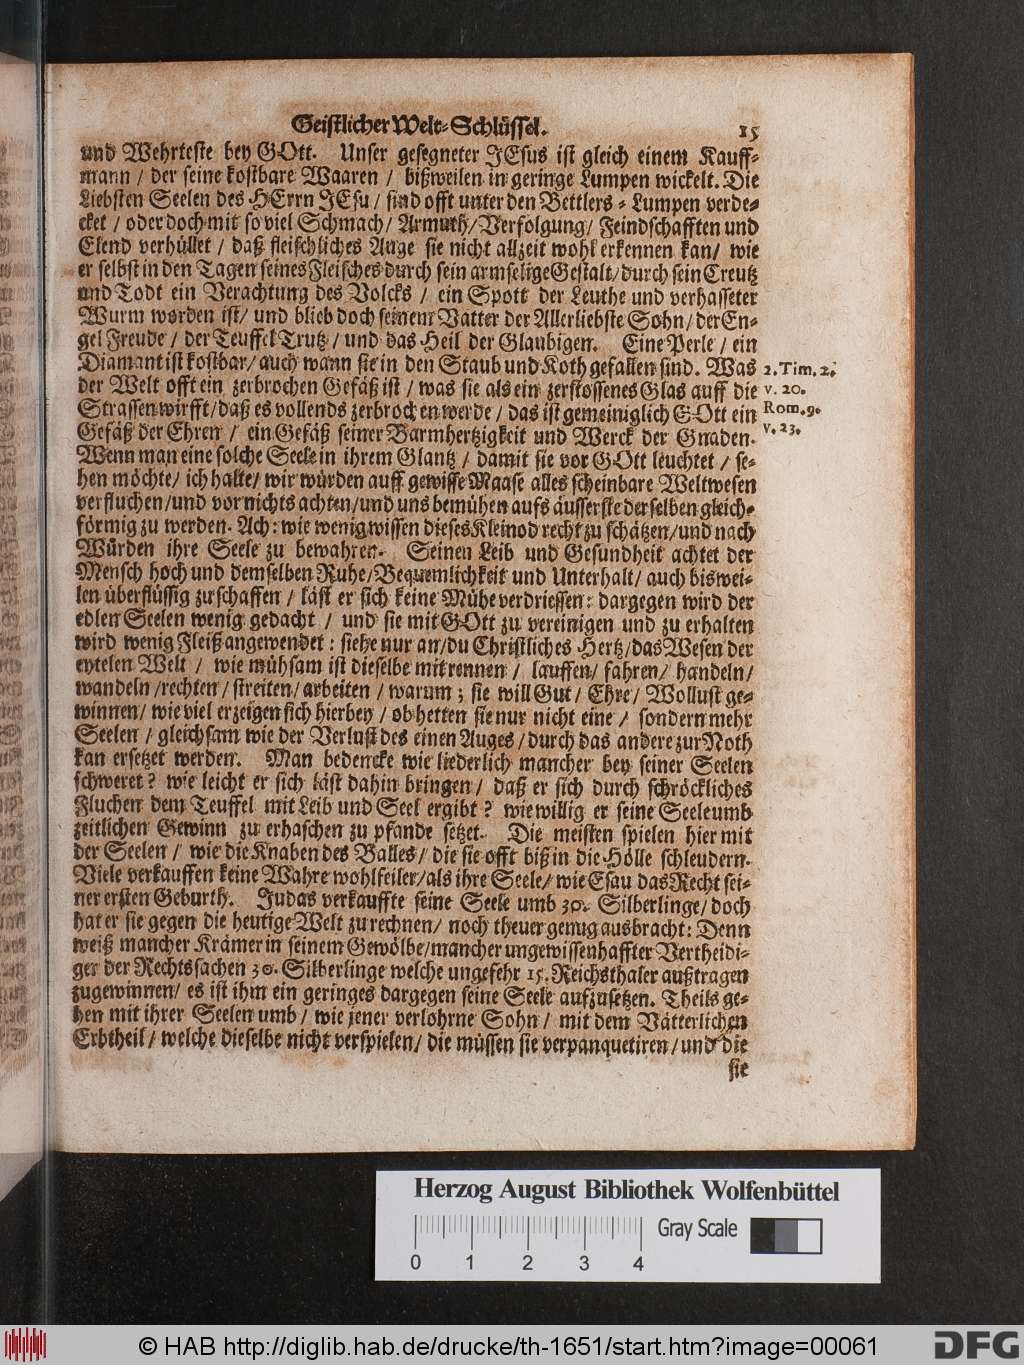 Geistlicher Welt-Schlüssel. 15
und Wehrteste bey GOtt. Unser gesegneter JEsus ist gleich einem Kauff-
mann / der seine kostbare Waaren / bißweilen in geringe Lumpen wickelt. Die
Liebsten Seelen des HErrn JEsu / sind offt unter den Bettlers-Lumpen verde-
cket / oder doch mit so viel Schmach / Armuth / Verfolgung / Feindschafften und
Elend verhüllet / daß fleischliches Auge sie nicht allzeit wohl erkennen kan / wie
er selbst in den Tagen seines Fleisches durch sein armselige Gestalt / durch sein Creutz
und Todt ein Verachtung des Volcks / ein Spott der Leuthe und verhasseter
Wurm worden ist / und blieb doch seinem Vatter der Allerliebste Sohn / der En-
gel Freude / der Teuffel Trutz / und das Heil der Glaubigen. Eine Perle / ein
Diamant ist kostbar / auch wann sie in den Staub und Koth gefallen sind. Was
der Welt offt ein zerbrochen Gefäß ist / was sie als ein zerstossenes Glas auff die
Strassen wirfft / daß es vollends zerbrochen werde / das ist gemeiniglich GOtt ein
Gefäß der Ehren / ein Gefäß seiner Barmhertzigkeit und Werck der Gnaden.
2. Tim. 2.
v. 20.
Rom. 9.
v. 23.
Wenn man eine solche Seele in ihrem Glantz / damit sie vor GOtt leuchtet / se-
hen möchte / ich halte / wir würden auff gewisse Maase alles scheinbare Weltwesen
verfluchen / und vor nichts achten / und uns bemühen aufs äusserste derselben gleich-
förmig zu werden. Ach: wie wenig wissen dieses Kleinod recht zu schätzen / und nach
Würden ihre Seele zu bewahren. Seinen Leib und Gesundheit achtet der
Mensch hoch und demselben Ruhe / Bequemlichkeit und Unterhalt / auch biswei-
len überflüssig zu schaffen / läst er sich keine Mühe verdriessen: dargegen wird der
edlen Seelen wenig gedacht / und sie mit GOtt zu vereinigen und zu erhalten
wird wenig Fleiß angewendet: siehe nur an / du Christliches Hertz / das Wesen der
eytelen Welt / wie mühsam ist dieselbe mit rennen / lauffen / fahren / handeln /
wandeln / rechten / streiten / arbeiten / warum; sie will Gut / Ehre / Wollust ge-
winnen / wie viel erzeigen sich hierbey / ob hetten sie nur nicht eine / sondern mehr
Seelen / gleichsam wie der Verlust des einen Auges / durch das andere zur Noth
kan ersetzet werden. Man bedencke wie liederlich mancher bey seiner Seelen
schweret? wie leicht er sich läst dahin bringen / daß er sich durch schröckliches
Fluchen dem Teuffel mit Leib und Seel ergibt? wie willig er seine Seele umb
zeitlichen Gewinn zu erhaschen zu pfande setzet. Die meisten spielen hier mit
der Seelen / wie die Knaben des Balles / die sie offt biß in die Hölle schleudern.
Viele verkauffen keine Wahre wohlfeiler / als ihre Seele / wie Esau das Recht sei-
ner ersten Geburth. Judas verkauffte seine Seele umb 30. Silberlinge / doch
hat er sie gegen die heutige Welt zu rechnen / noch theuer genug ausbracht: Denn
weiß mancher Krämer in seinem Gewölbe / mancher ungewissenhaffter Vertheidi-
ger der Rechtssachen 30. Silberlinge welche ungefehr 15. Reichsthaler außtragen
zugewinnen / es ist ihm ein geringes dargegen seine Seele aufzusetzen. Theils ge-
hen mit ihrer Seelen umb / wie jener verlohrne Sohn / mit dem Vätterlichen
Erbtheil / welche dieselbe nicht verspielen / die müssen sie verpanquetiren / und die
sie
Herzog August Bibliothek Wolfenbüttel
Gray Scale
0 1 2 3 4
© HAB http://diglib.hab.de/drucke/th-1651/start.htm?image=00061
DFG